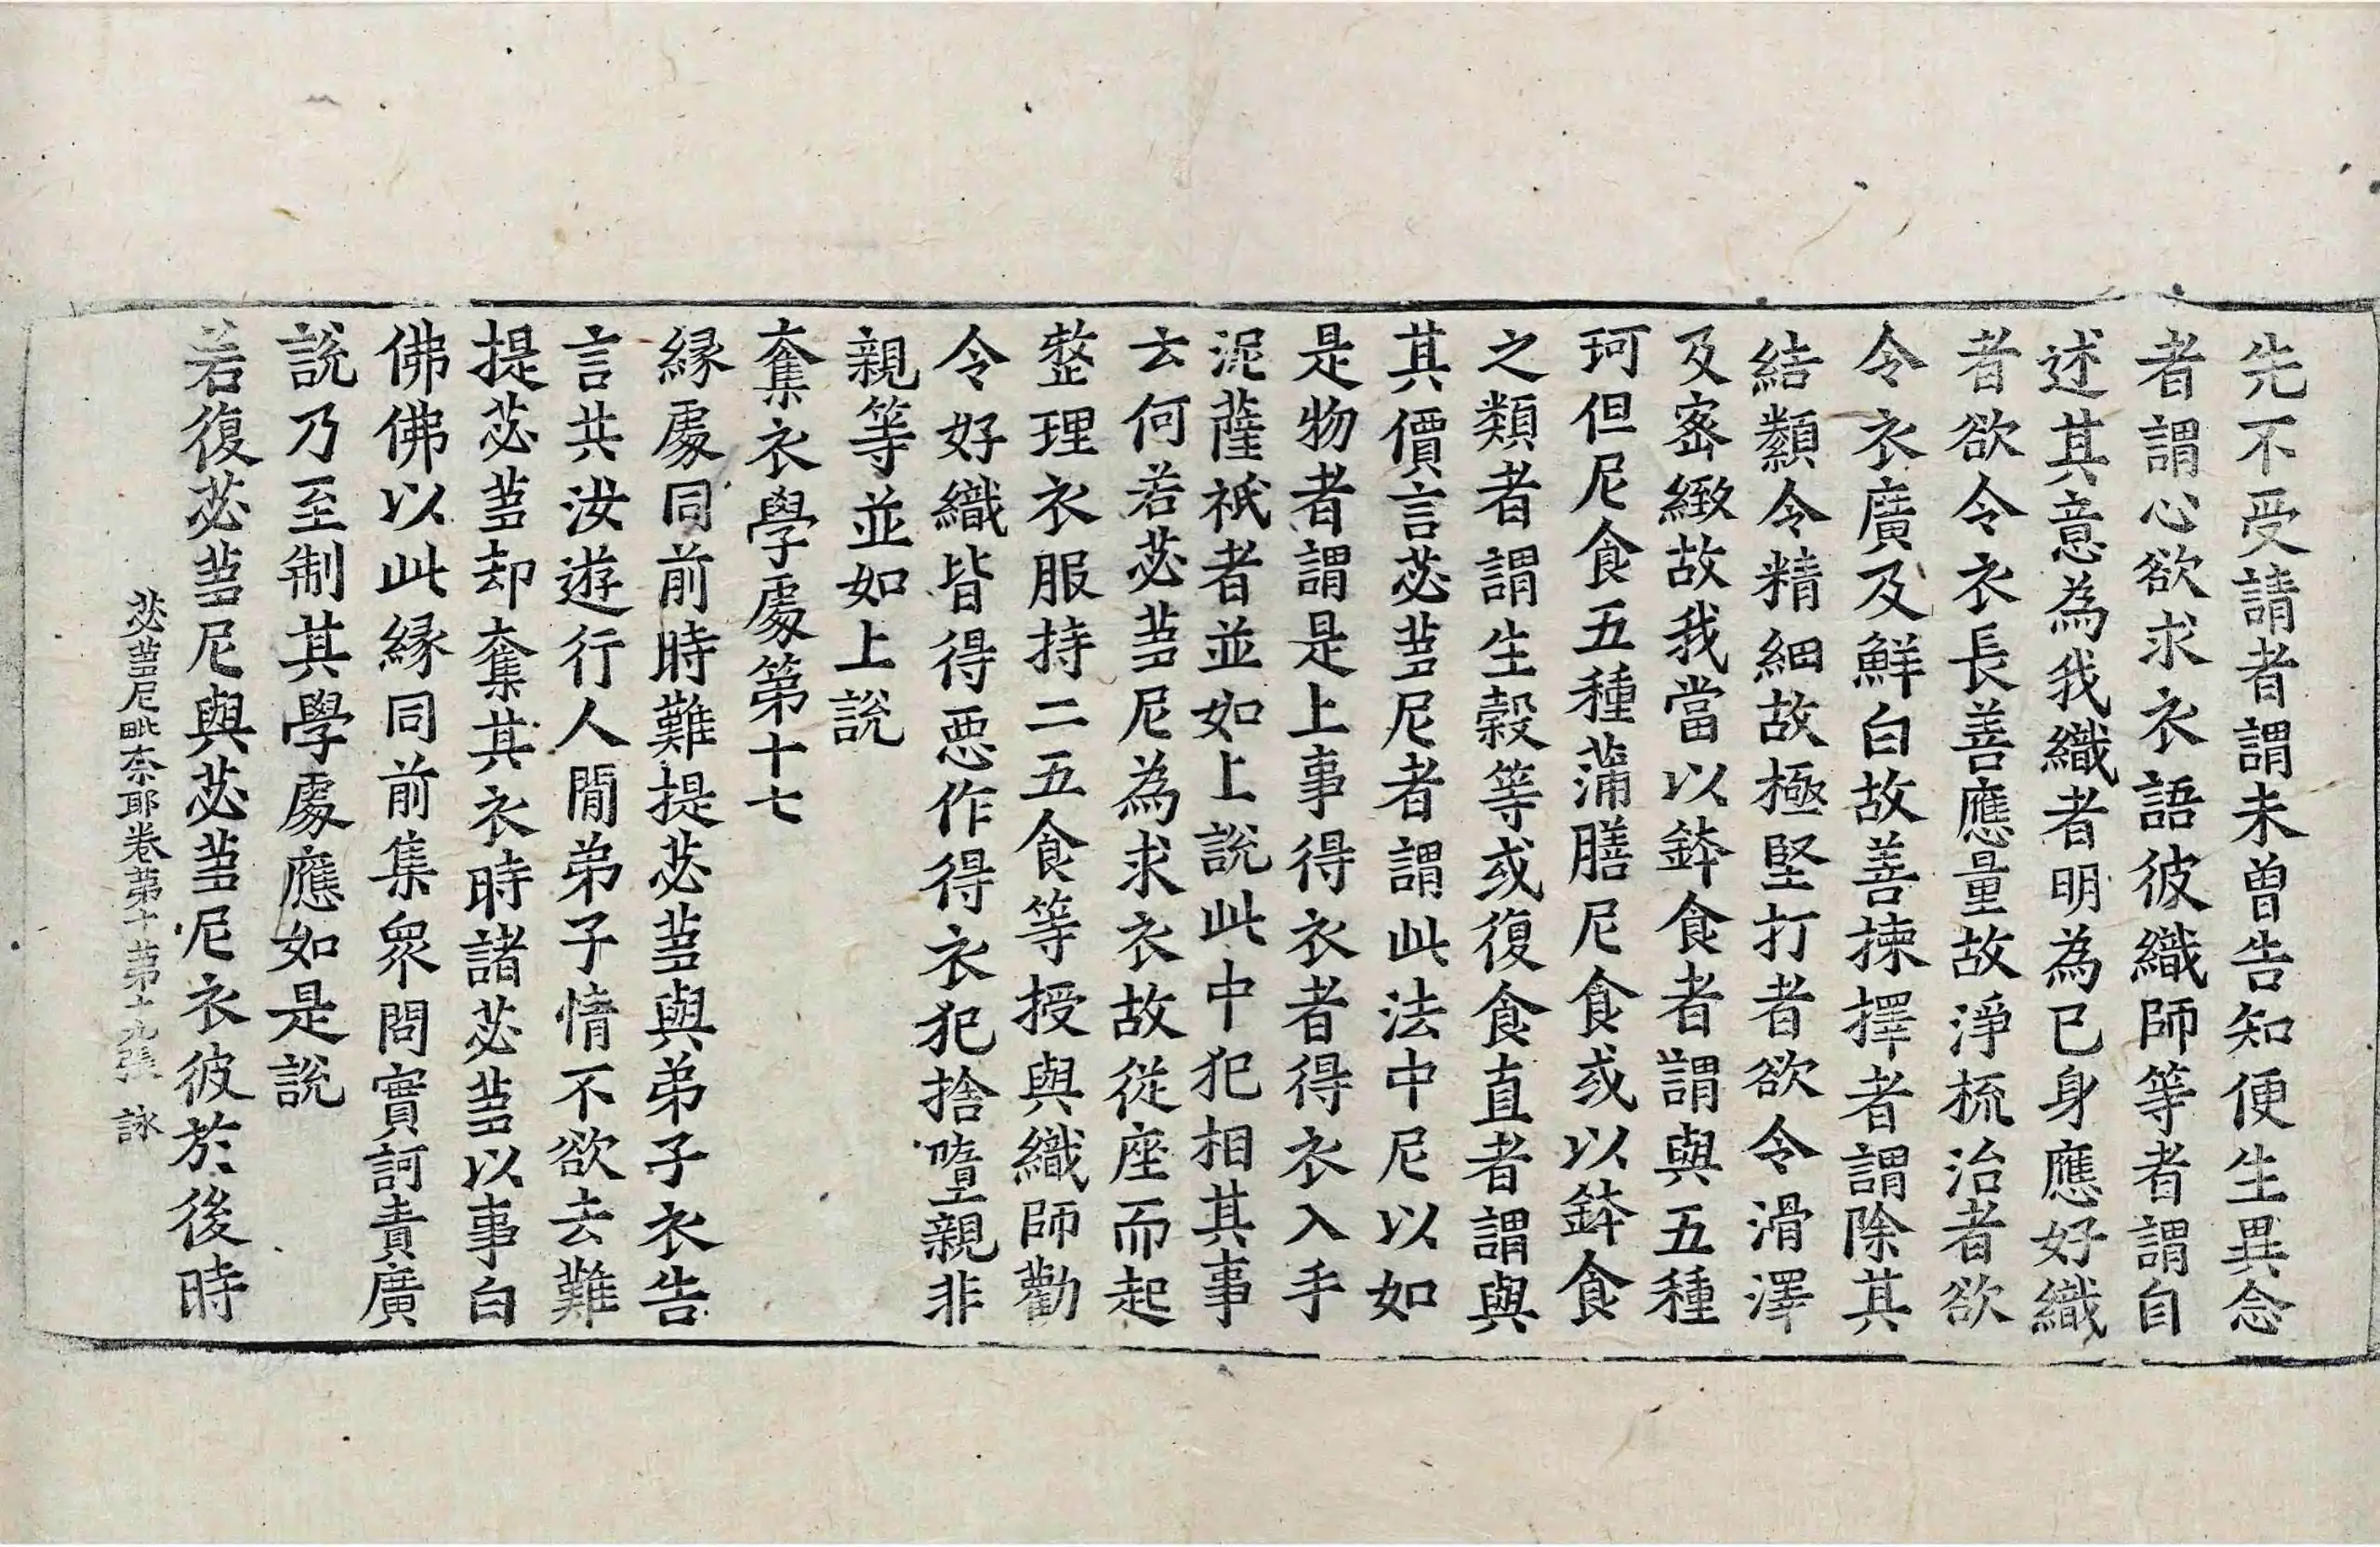 先不受請者謂未曽告知便生異念
者謂心欲求衣語彼織師等者謂自
述其意為我織者明為已身應好織
者欲令衣長善應量故淨梳治者欲
令衣廣及鮮白故善揀擇者謂除其
結纇令精細故極堅打者欲令滑澤
及宻緻故我當以鉢食者謂與五種
珂但尼食五種蒲膳尼食或以鉢食
之類者謂生榖等或復食直者謂與
其價言苾蒭尼者謂此法中尼以如
是物者謂是上事得衣者得衣入手
泥薩祇者並如上說此中犯相其事
云何若苾蒭尼為求衣故從座而起
整理衣服持二五食等授與織師勸
令好織皆得惡作得衣犯捨墮親非
親等並如上說
奪衣學處第十七
緣處同前時難提苾蒭與弟子衣告
言共汝遊行人間弟子情不欲去難
提苾蒭却奪其衣時諸苾蒭以事白
佛佛以此緣同前集眾問實訶責廣
說乃至制其學處應如是說
若復苾蒭尼與苾蒭尼衣彼於後時
苾蒭尼毗奈耶卷第十第十九張 詠